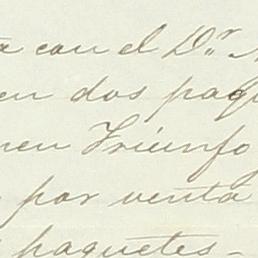 con el Dr.
en dos paq
en Triunfo
por venta
paquetes-